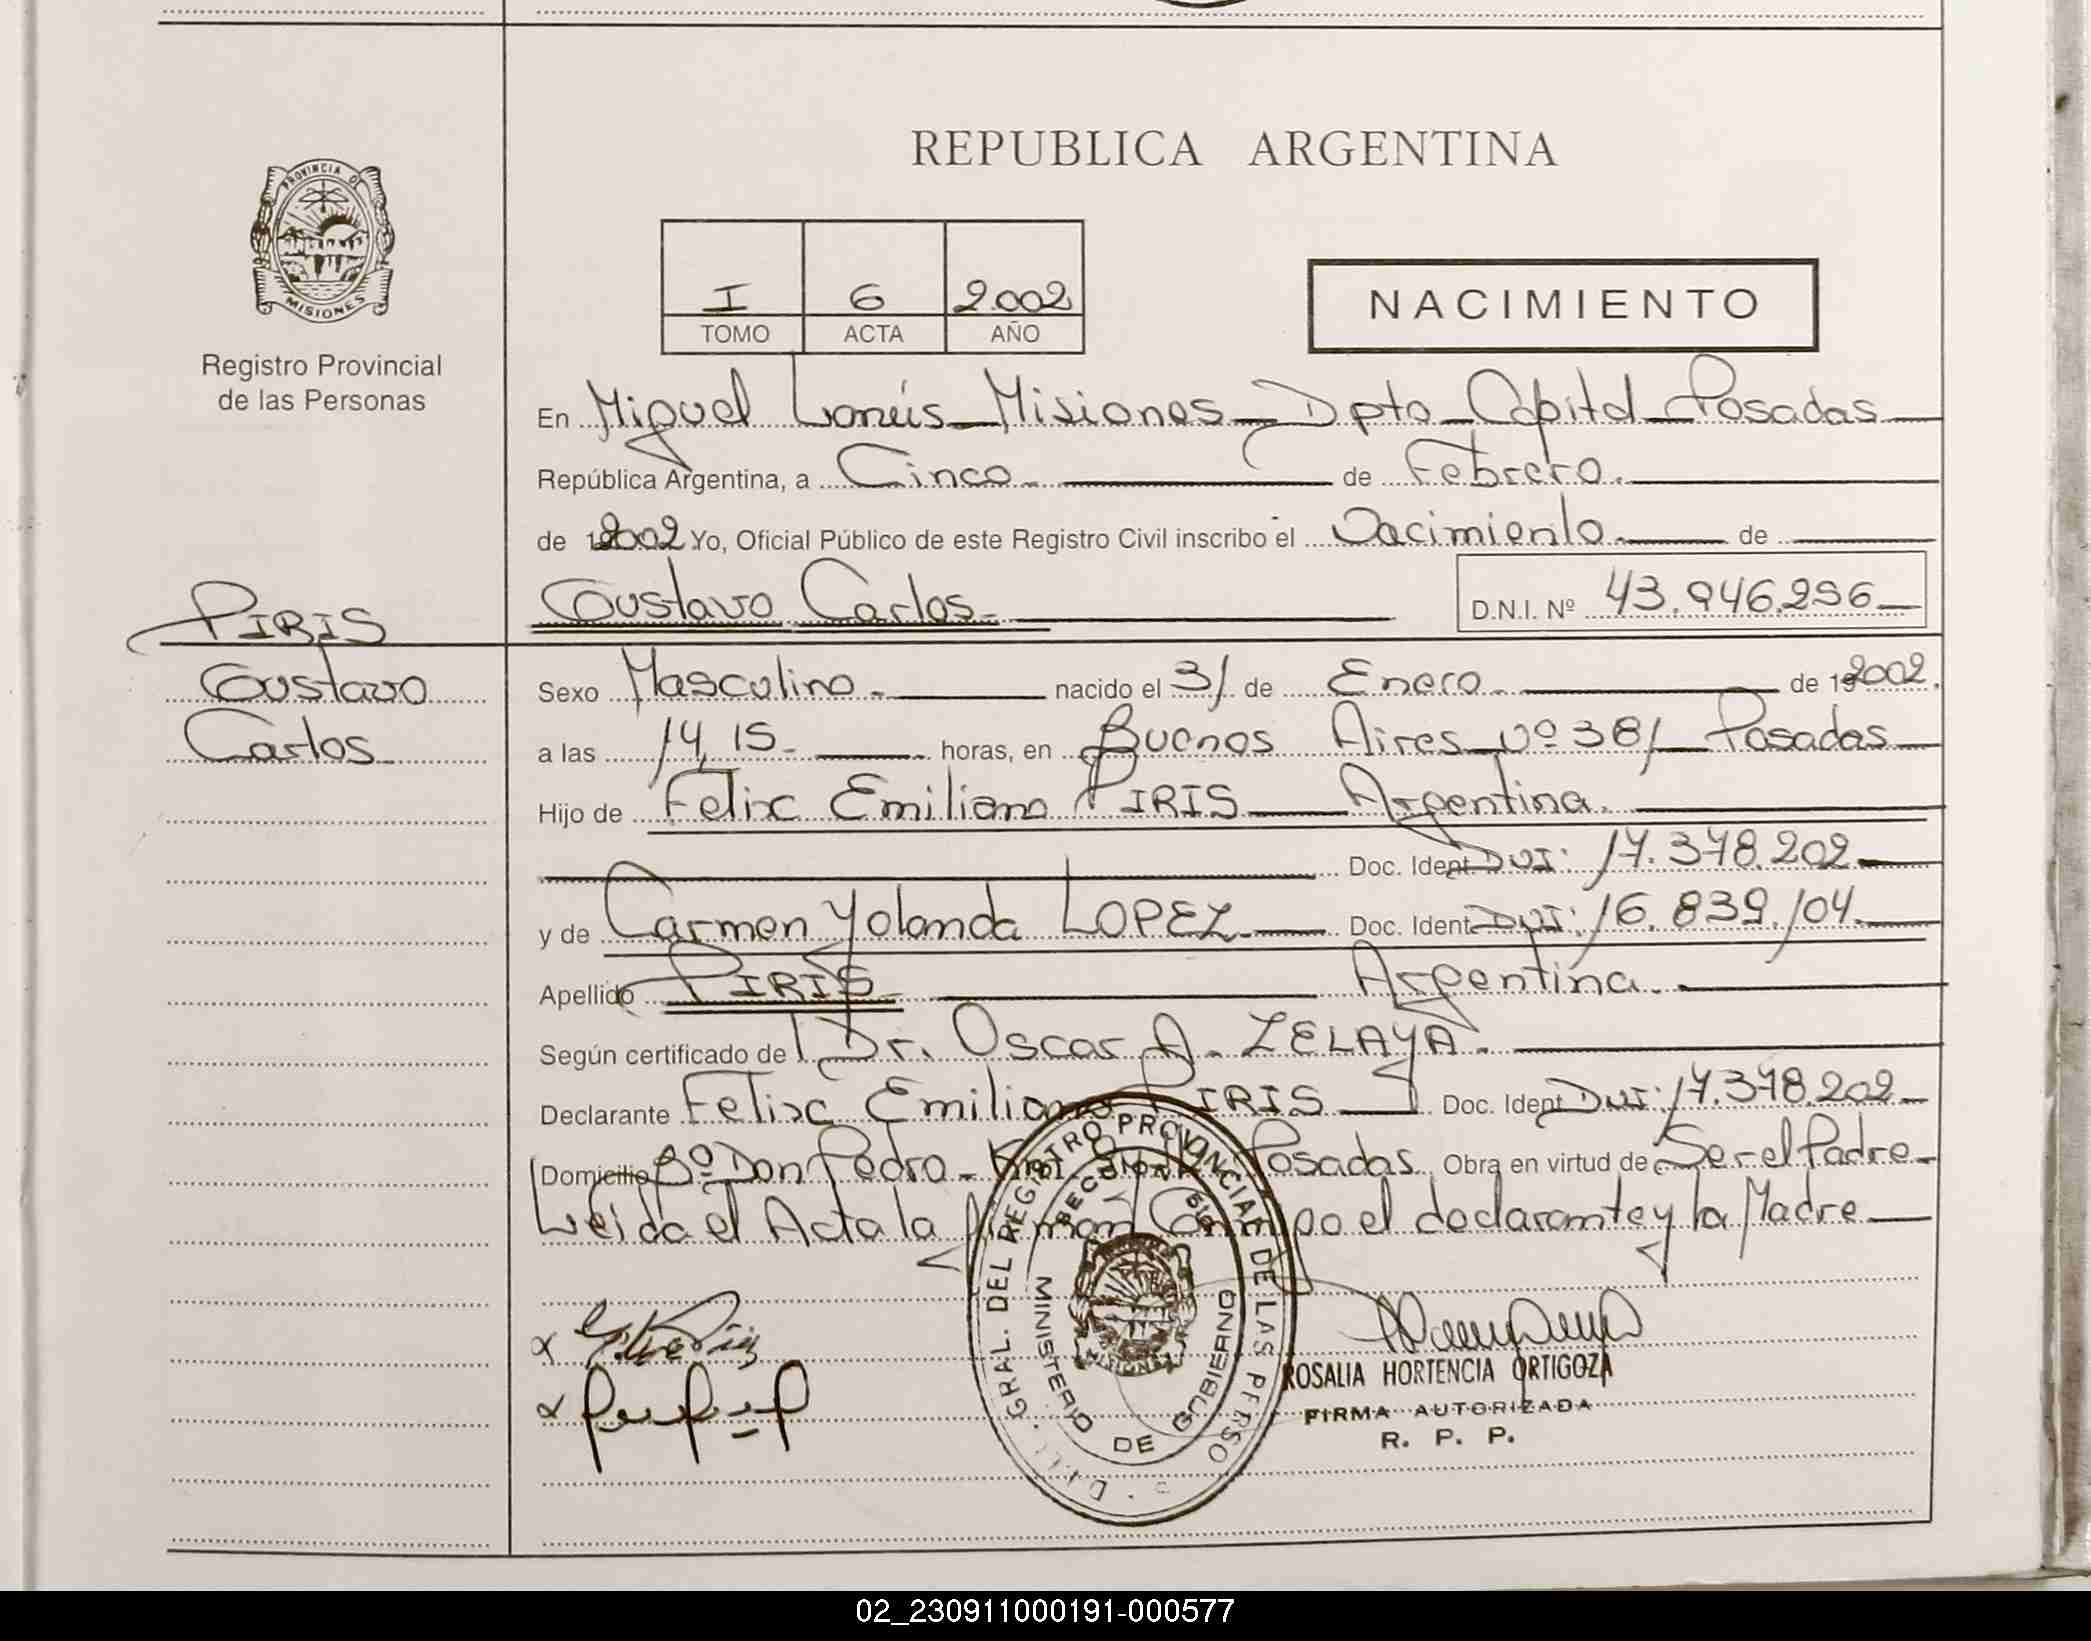 REPUBLICA ARGENTINA
PROVINCIA DE
MISIONES
Registro Provincial
de las Personas
I 6 2.002
TOMO ACTA AÑO
NACIMIENTO
En Miguel Lanús - Misiones - Dpto - Capital - Posadas
República Argentina, a Cinco de Febrero.
de 2002 Yo, Oficial Público de este Registro Civil inscribo el Nacimiento de
PIRIS
Gustavo Carlos. D.N.I. Nº 43.946.296
Gustavo
Carlos
Sexo Masculino. nacido el 31 de Enero. de 192002.
a las 14,15. horas, en Buenos Aires nº 381 Posadas
Hijo de Felix Emiliano PIRIS Argentina.
Doc. Ident DNI: 17.378.202
y de Carmen Yolanda LOPEZ Doc. Ident DNI: 16.839.104.
Apellido PIRIS Argentina.
Según certificado de Dr. Oscar A. ZELAYA.
Declarante Felix Emiliano PIRIS Doc. Ident DNI: 17.378.202
Domicilio Bº Don Pedro - Posadas Obra en virtud de Ser el Padre
Leída el Acta la firman Conmigo el declarante y la Madre
GRAL. DEL REGISTRO PROVINCIAL DE LAS PERSO
MINISTERIO DE GOBIERNO
MISIONES
ROSALIA HORTENCIA ORTIGOZA
FIRMA AUTORIZADA
R. P. P.
02_230911000191-000577